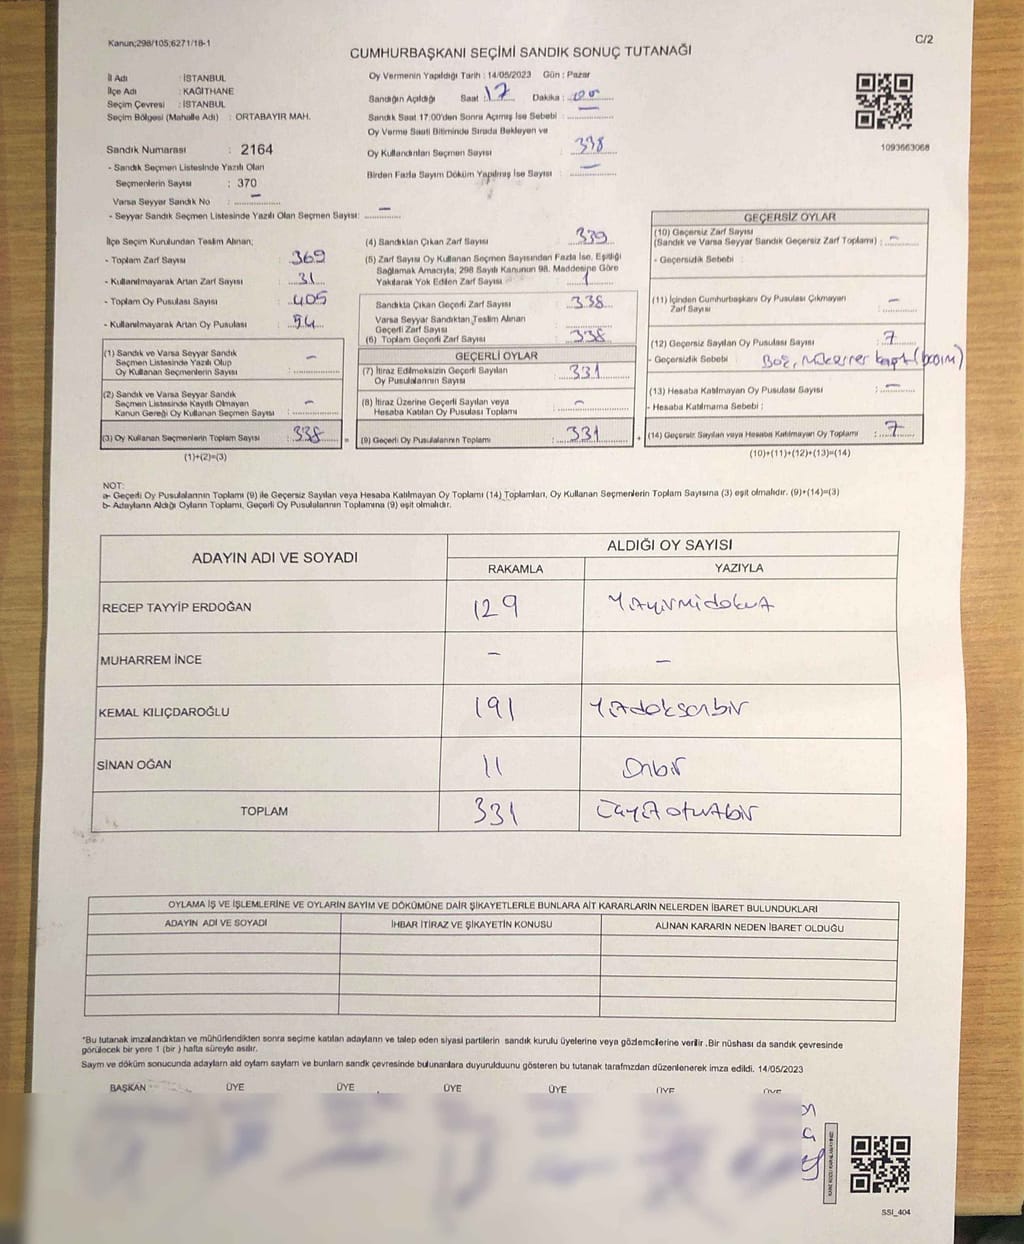 Kanun;298/105;6271/18-1
C/2
CUMHURBAŞKANI SEÇİMİ SANDIK SONUÇ TUTANAĞI
İl Adı : İSTANBUL
İlçe Adı : KAĞITHANE
Seçim Çevresi : İSTANBUL
Seçim Bölgesi (Mahalle Adı) : ORTABAYIR MAH.
Sandık Numarası : 2164
- Sandık Seçmen Listesinde Yazılı Olan
Seçmenlerin Sayısı : 370
Varsa Seyyar Sandık No : –
- Seyyar Sandık Seçmen Listesinde Yazılı Olan Seçmen Sayısı: –
Oy Vermenin Yapıldığı Tarih : 14/05/2023 Gün : Pazar
Sandığın Açıldığı Saat 17 Dakika : 00
Sandık Saat 17:00'den Sonra Açımış İse Sebebi : –
Oy Verme Saati Bitiminde Sırada Bekleyen ve
Oy Kullandırılan Seçmen Sayısı : 338
Birden Fazla Sayım Döküm Yapılmış İse Sayısı : –
1093663068
İlçe Seçim Kurulundan Teslim Alınan;
- Toplam Zarf Sayısı : 369
- Kullanılmayarak Artan Zarf Sayısı : 31
- Toplam Oy Pusulası Sayısı : 405
- Kullanılmayarak Artan Oy Pusulası :
(1) Sandık ve Varsa Seyyar Sandık
Seçmen Listesinde Yazılı Olup
Oy Kullanan Seçmenlerin Sayısı : –
(2) Sandık ve Varsa Seyyar Sandık
Seçmen Listesinde Kayıtlı Olmayan
Kanun Gereği Oy Kullanan Seçmen Sayısı : –
(3) Oy Kullanan Seçmenlerin Toplam Sayısı : 338 =
(1)+(2)=(3)
(4) Sandıktan Çıkan Zarf Sayısı : 339
(5) Zarf Sayısı Oy Kullanan Seçmen Sayısından Fazla İse, Eşitliği
Sağlamak Amacıyla; 298 Sayılı Kanunun 98. Maddesine Göre
Yakılarak Yok Edilen Zarf Sayısı : 1
Sandıkta Çıkan Geçerli Zarf Sayısı : 338
Varsa Seyyar Sandıktan Teslim Alınan
Geçerli Zarf Sayısı :
(6) Toplam Geçerli Zarf Sayısı : 338
GEÇERLİ OYLAR
(7) İtiraz Edilmeksizin Geçerli Sayılan
Oy Pusulalarının Sayısı : 331
(8) İtiraz Üzerine Geçerli Sayılan veya
Hesaba Katılan Oy Pusulası Toplamı : –
(9) Geçerli Oy Pusulalarının Toplamı : 331 +
GEÇERSİZ OYLAR
(10) Geçersiz Zarf Sayısı
(Sandık ve Varsa Seyyar Sandık Geçersiz Zarf Toplamı) : –
- Geçersizlik Sebebi :
(11) İçinden Cumhurbaşkanı Oy Pusulası Çıkmayan
Zarf Sayısı : –
(12) Geçersiz Sayılan Oy Pusulası Sayısı : 7
- Geçersizlik Sebebi : Boş, Mükerrer
(13) Hesaba Katılmayan Oy Pusulası Sayısı : –
- Hesaba Katılmama Sebebi :
(14) Geçersiz Sayılan veya Hesaba Katılmayan Oy Toplamı : 7
(10)+(11)+(12)+(13)=(14)
NOT:
a- Geçerli Oy Pusulalarının Toplamı (9) ile Geçersiz Sayılan veya Hesaba Katılmayan Oy Toplamı (14) Toplamları, Oy Kullanan Seçmenlerin Toplam Sayısına (3) eşit olmalıdır. (9)+(14)=(3)
b- Adayların Aldığı Oyların Toplamı, Geçerli Oy Pusulalarının Toplamına (9) eşit olmalıdır.
ADAYIN ADI VE SOYADI
ALDIĞI OY SAYISI
RAKAMLA YAZIYLA
RECEP TAYYİP ERDOĞAN 129 Yüzyirmidokuz
MUHARREM İNCE – –
KEMAL KILIÇDAROĞLU 191 Yüzdoksanbir
SİNAN OĞAN 11 Onbir
TOPLAM 331 Üçyüzotuzbir
OYLAMA İŞ VE İŞLEMLERİNE VE OYLARIN SAYIM VE DÖKÜMÜNE DAİR ŞİKAYETLERLE BUNLARA AİT KARARLARIN NELERDEN İBARET BULUNDUKLARI
ADAYIN ADI VE SOYADI İHBAR İTİRAZ VE ŞİKAYETİN KONUSU ALINAN KARARIN NEDEN İBARET OLDUĞU
*Bu tutanak imzalandıktan ve mühürlendikten sonra seçime katılan adayların ve talep eden siyasi partilerin sandık kurulu üyelerine veya gözlemcilerine verilir .Bir nüshası da sandık çevresinde
görülecek bir yere 1 (bir ) hafta süreyle asılır.
Sayım ve döküm sonucunda adayların ald oyların sayların ve bunların sandk çevresinde bulunanlara duyurulduunu gösteren bu tutanak tarafmzdan düzenlenerek imza edildi. 14/05/2023
BAŞKAN ÜYE ÜYE ÜYE ÜYE ÜYE ÜYE
SSI_404